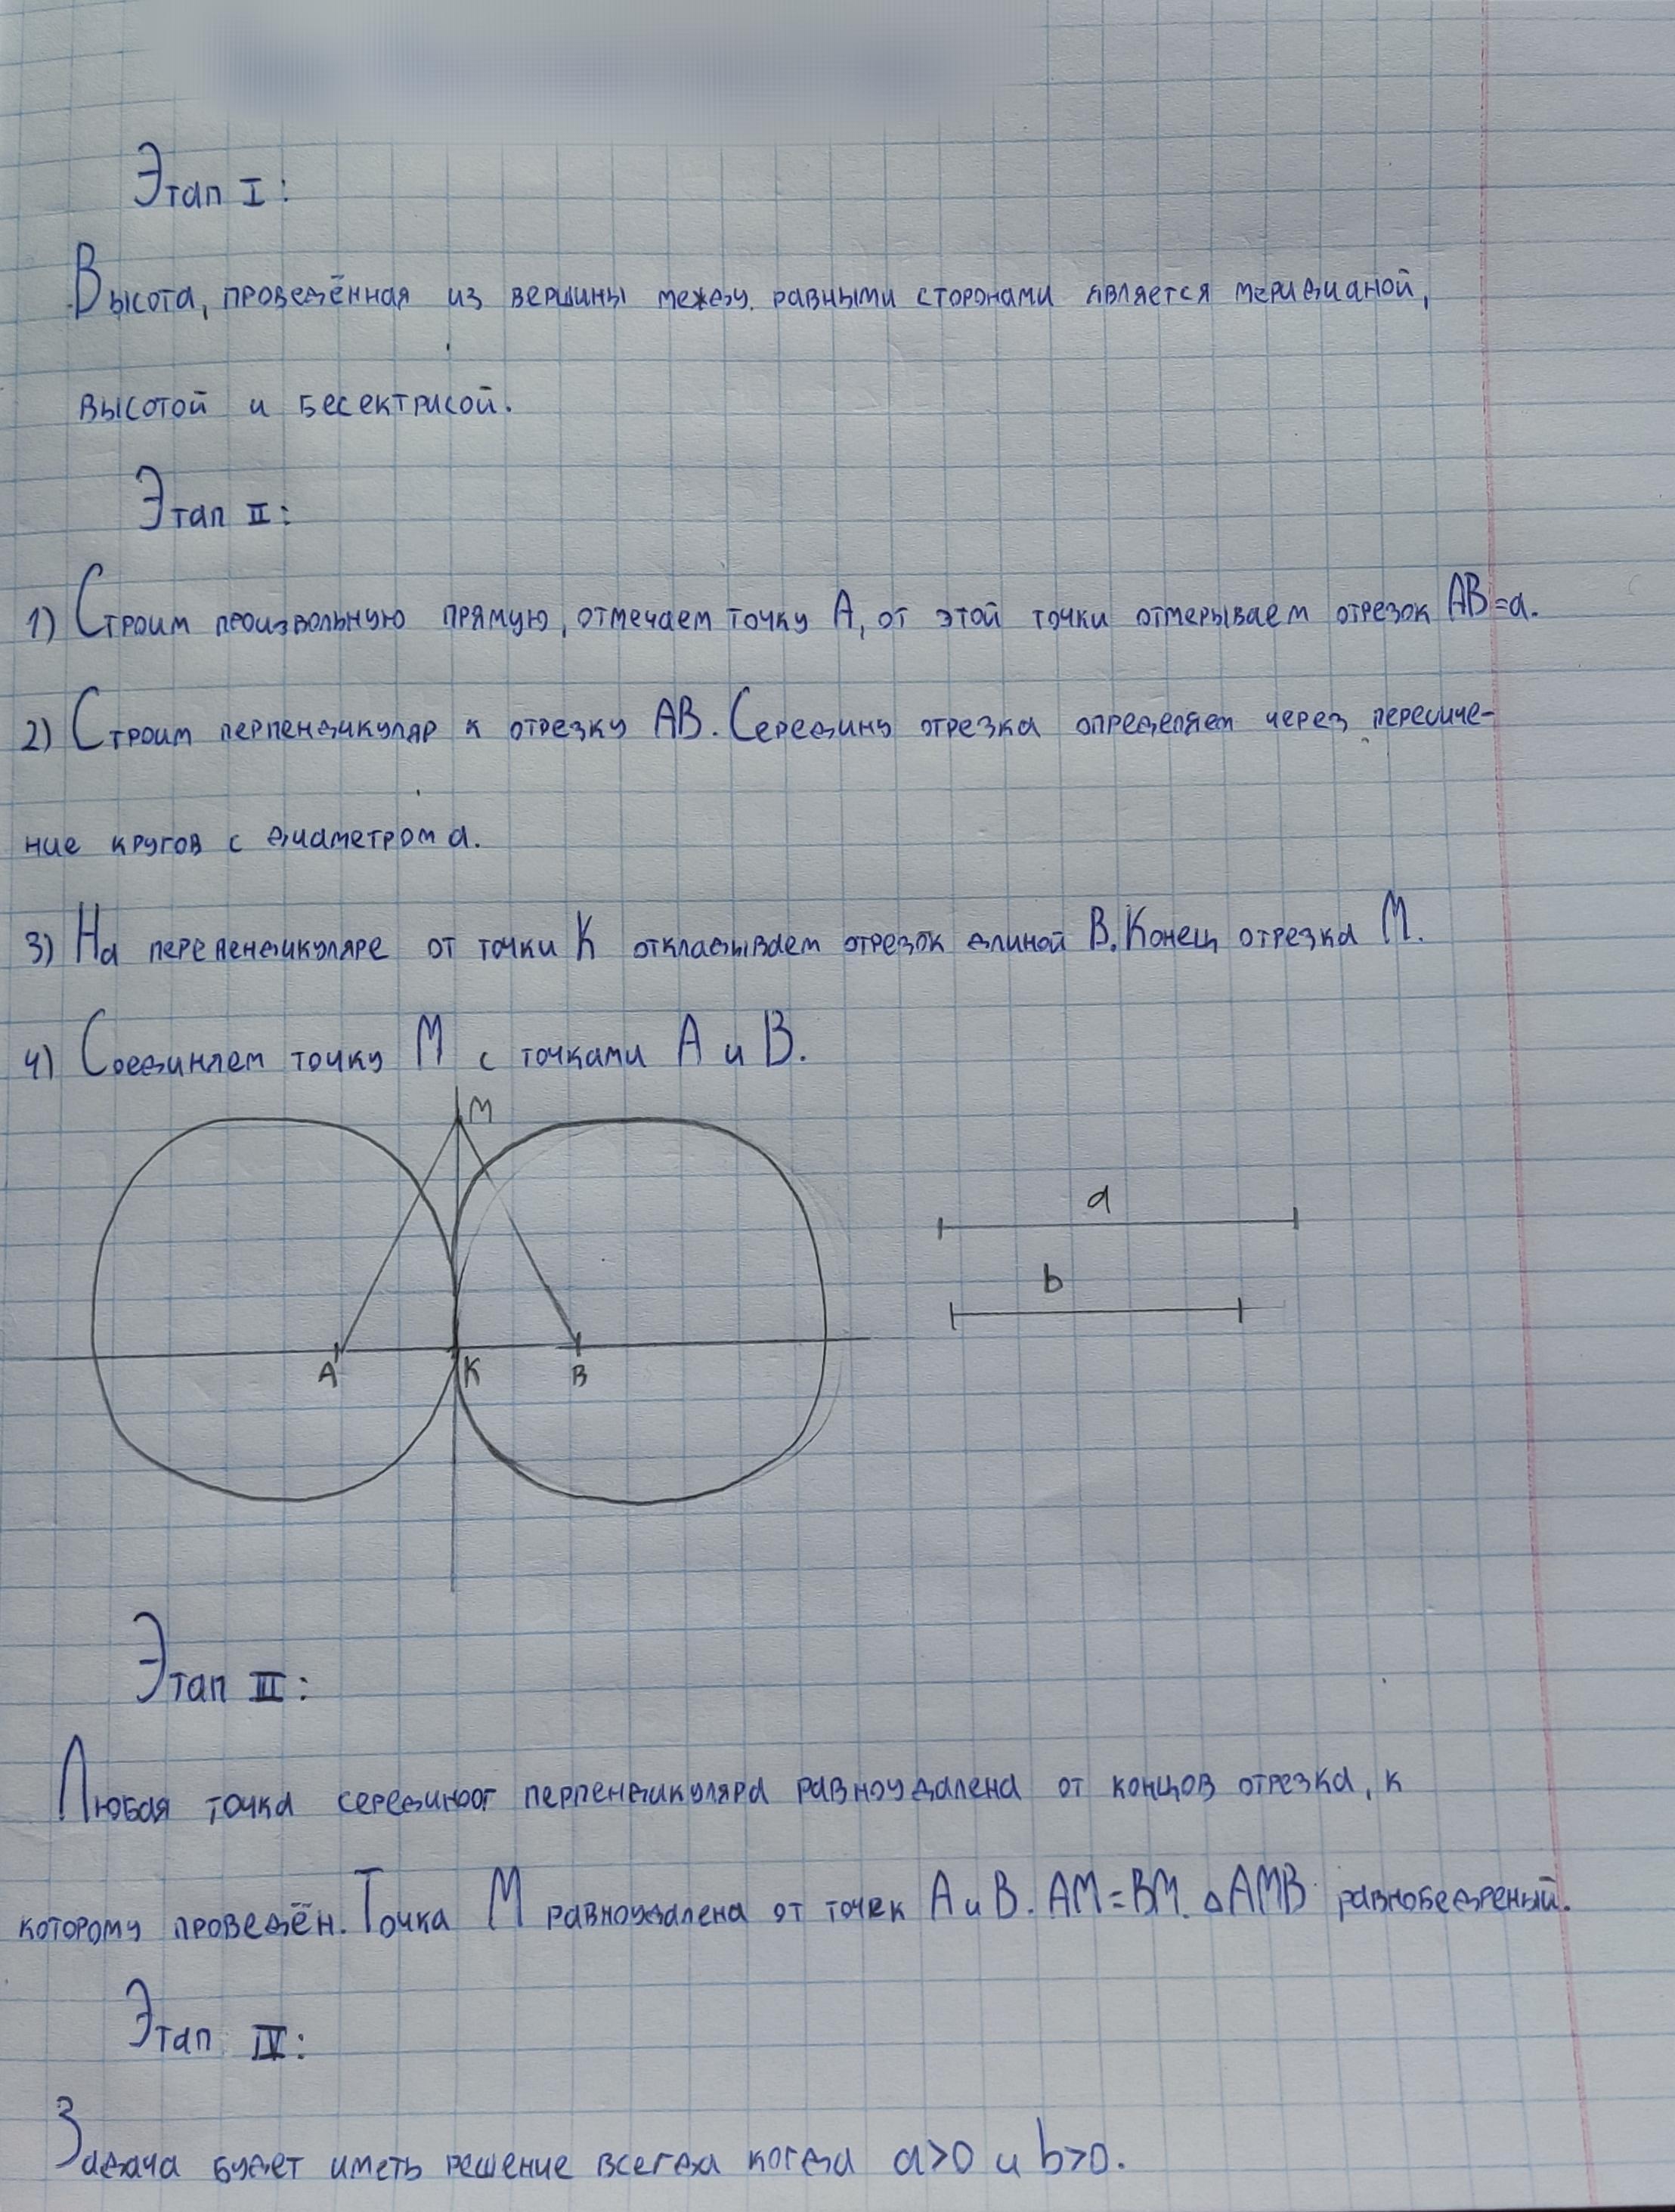 Этап I:
Высота, проведённая из вершины между равными сторонами является меридианой,
высотой и бесектрисой.
Этап II:
1) Строим произвольную прямую, отмечаем точку A, от этой точки отмерываем отрезок AB=a.
2) Строим перпендикуляр к отрезку AB. Середину отрезка определяем через пересиче-
ние кругов с диаметром a.
3) На перепендикуляре от точки K откладываем отрезок длиной B. Конец отрезка M.
4) Соединяем точку M с точками A и B.
M
a
b
A K B
Этап III:
Любая точка перпендикуляра равноудалена от концов отрезка, к
которому проведён. Точка M равноудалена от точек A и B. AM=BM. △AMB равнобедреный.
Этап IV:
Задача будет иметь решение всегда когда a>0 и b>0.